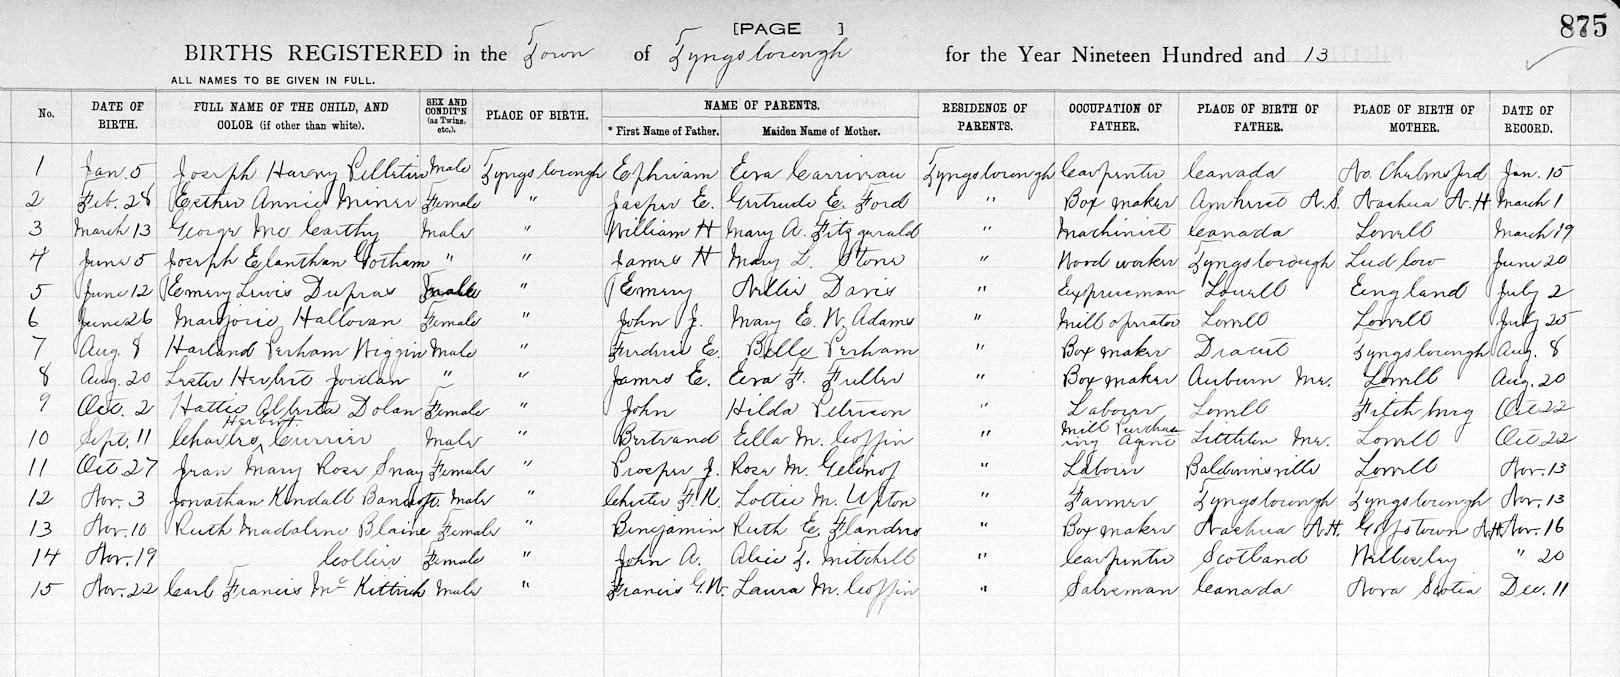 [PAGE ]
875
BIRTHS REGISTERED in the Town of Tyngsborough for the Year Nineteen Hundred and 13
ALL NAMES TO BE GIVEN IN FULL.
No. DATE OF BIRTH. FULL NAME OF THE CHILD, AND COLOR (if other than white). SEX AND CONDIT'N (as Twins, etc.). PLACE OF BIRTH. NAME OF PARENTS. * First Name of Father. Maiden Name of Mother. RESIDENCE OF PARENTS. OCCUPATION OF FATHER. PLACE OF BIRTH OF FATHER. PLACE OF BIRTH OF MOTHER. DATE OF RECORD.
1 Jan. 5 Joseph Harvey Pelletier Male Tyngsborough Ephriam Eva Carriveau Tyngsborough Carpenter Canada No. Chelmsford Jan. 15
2 Feb. 28 Esther Annie Miner Female " Jasper E. Gertrude E. Ford " Box maker Amherst N.S. Nashua N.H March 1
3 March 13 George Mc Carthy Male " William H Mary A. Fitzgerald " Machinist Canada Lowell March 19
4 June 5 Joseph Elanthan Gotham " " James H Mary L. Stone " Wood worker Tyngsborough Ludlow June 20
5 June 12 Emery Lewis Dupras " Emery Nellie Davis " Expressman Lowell England July 2
6 June 26 Marjorie Halloran Female " John J. Mary E. W. Adams " Mill operator Lowell Lowell July 25
7 Aug. 8 Harland Perham Wiggin Male " Frederic E. Belle Perham " Box maker Dracut Tyngsborough Aug. 8
8 Aug. 20 Lester Herbert Jordan " " James E. Eva F. Fuller " Box maker Auburn Me. Lowell Aug. 20
9 Oct. 2 Hattie Alberta Dolan Female " John Hilda Peterson " Laborer Lowell Fitchburg Oct 22
10 Sept. 11 Charles Herbert Currier Male " Bertrand Ella M. Coffin " Mill Purchasing Agent Littleton Me. Lowell Oct 22
11 Oct 27 Jean Mary Rose Snay Female " Prosper J. Rose M. " Laborer Baldwinsville Lowell Nov. 13
12 Nov. 3 Jonathan Kendall Bancroft. Male " Chester F. K. Lottie M. Upton " Farmer Tyngsborough Tyngsborough Nov. 13
13 Nov. 10 Ruth Madalene Blaine Female " Benjamin Ruth E. Flanders " Box maker Nashua N.H. Goffstown N.H Nov. 16
14 Nov. 19 Collier Female " John A. Alice L. Mitchell " Carpenter Scotland Wellesley " 20
15 Nov. 22 Carl Francis Mc Kittrick Male " Francis G. W. Laura M. Coffin " Salesman Canada Nova Scotia Dec. 11